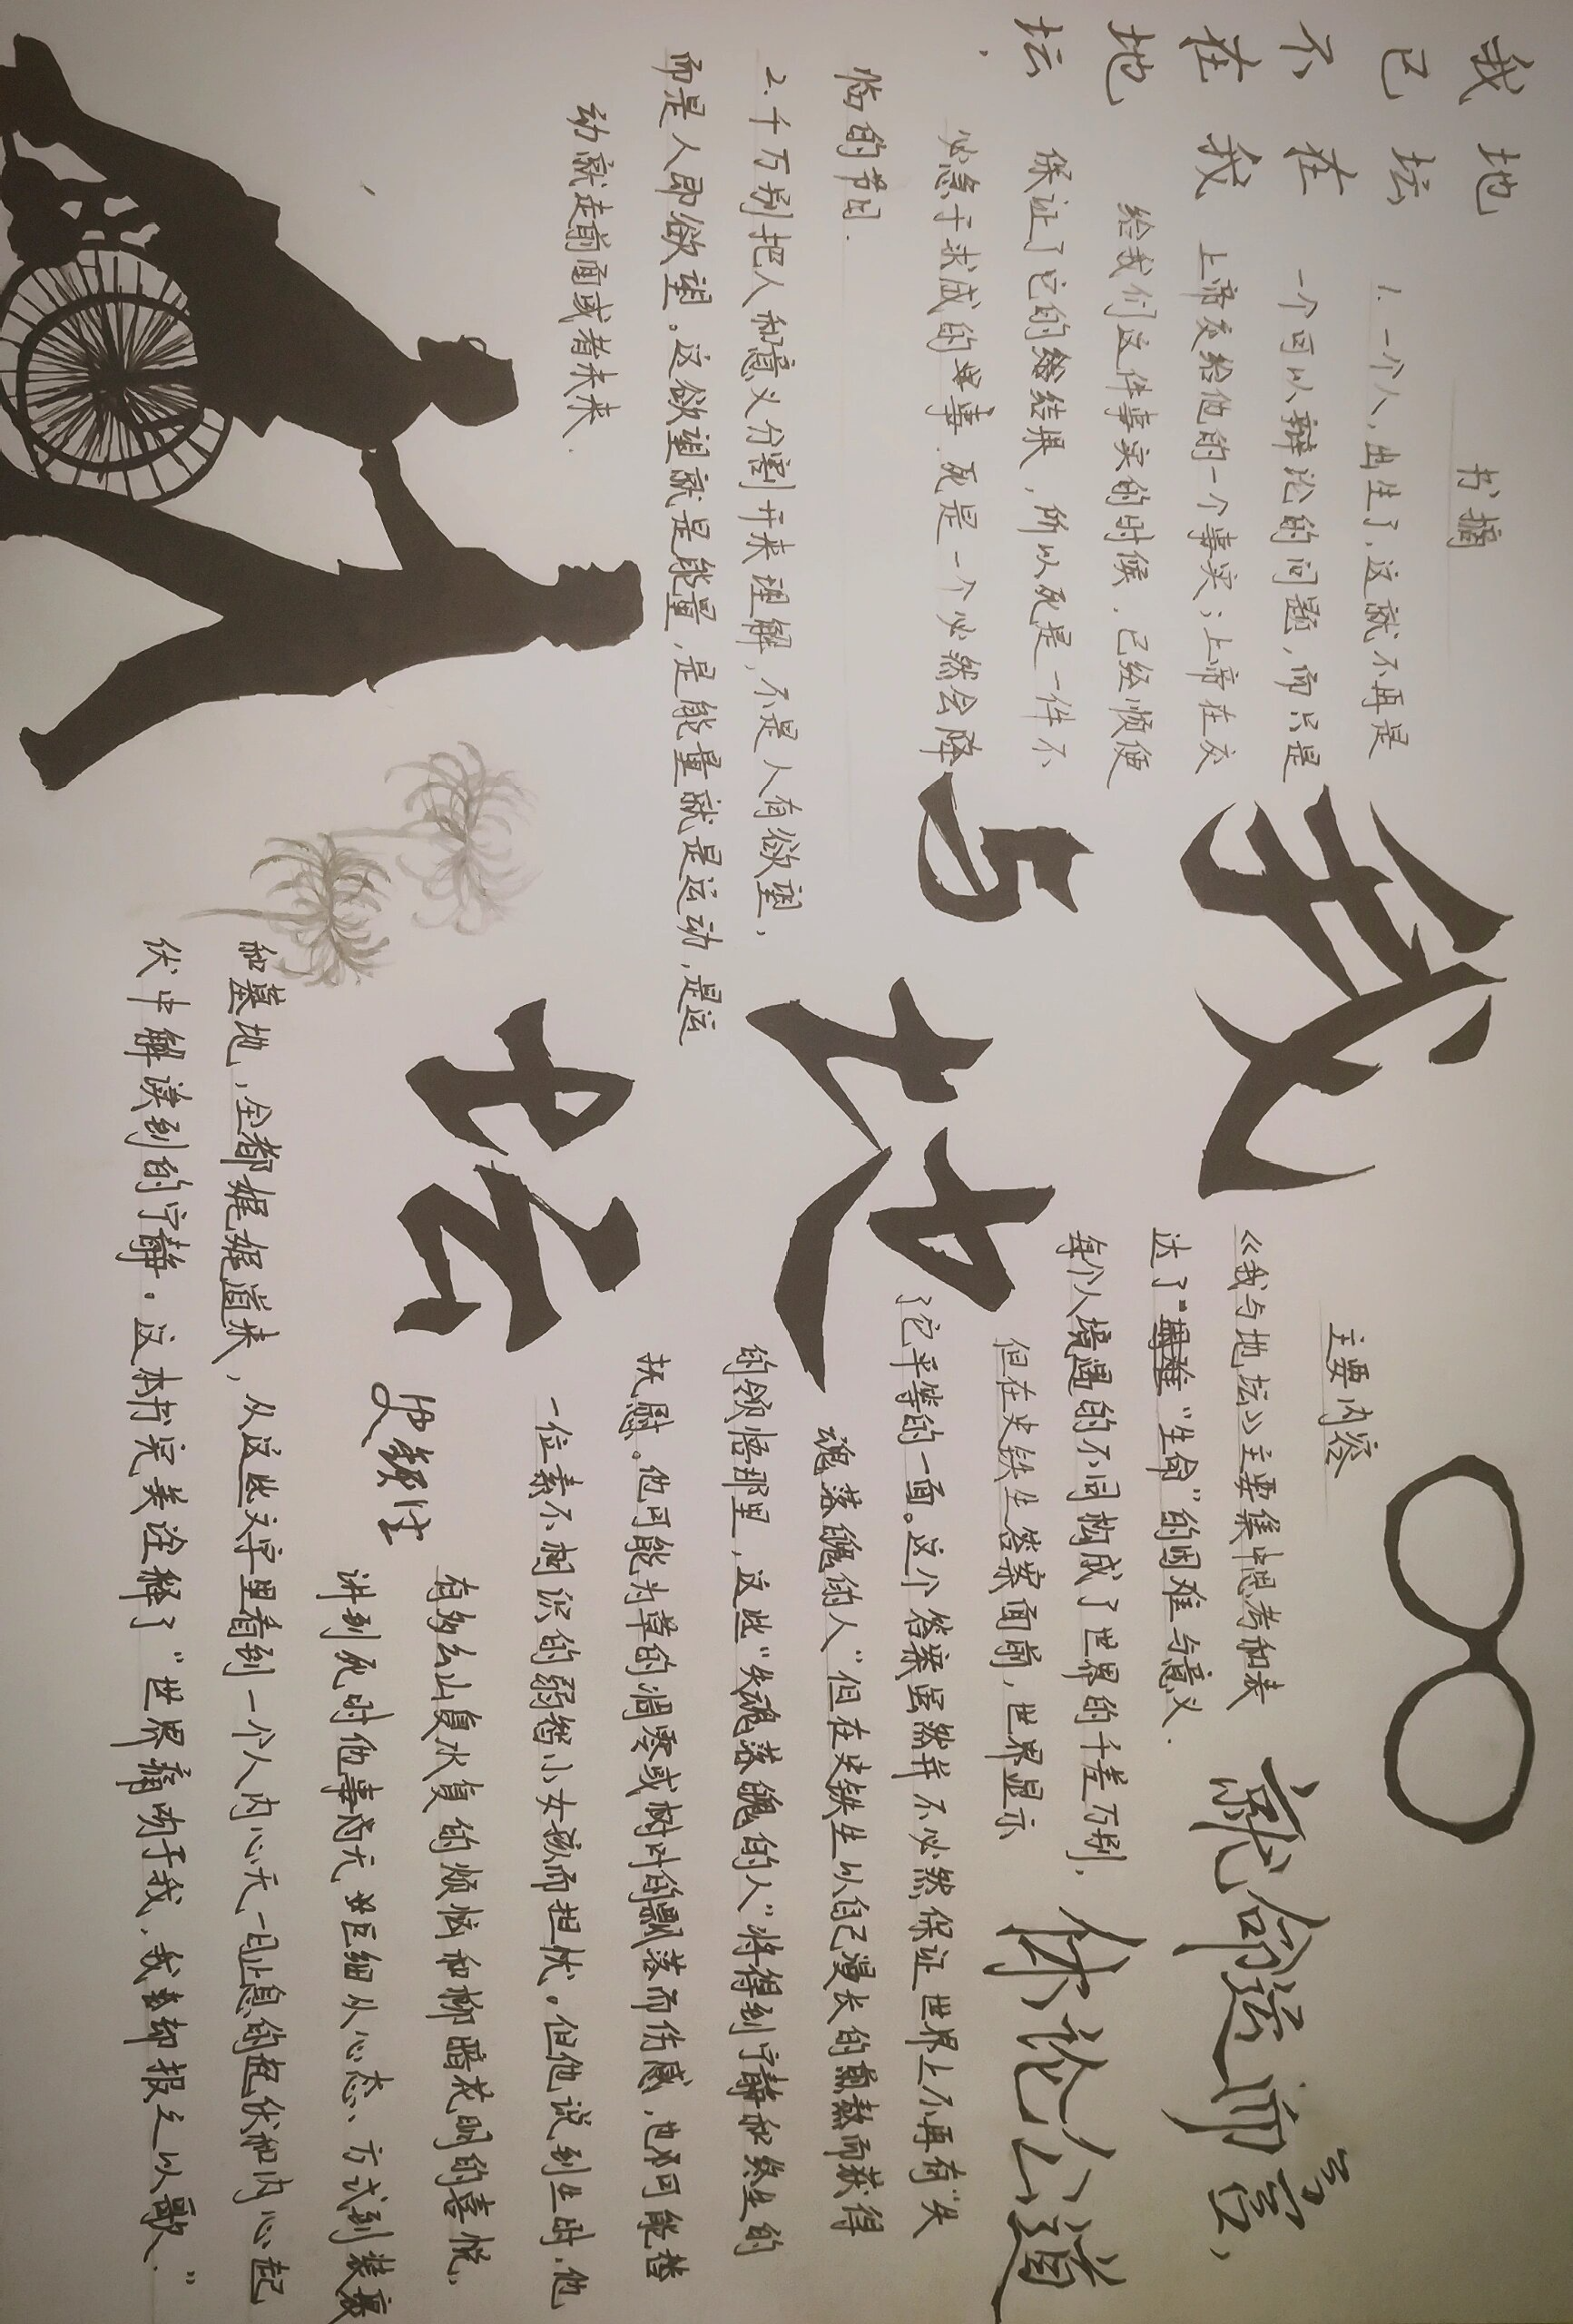 我已不在地坛，
地坛在我
书摘
1. 一个人，出生了，这就不再是
一个可以辩论的问题，而只是
上帝交给他的一个事实；上帝在交
给我们这件事实的时候，已经顺便
保证了它的结果，所以死是一件不
必急于求成的事，死是一个必然会降
临的节日．
2. 千万别把人和意义分割开来理解，不是人有欲望，
而是人即欲望。这欲望就是能量，是能量就是运动，是运
动就走前面或者未来．
我与地坛
史铁生
主要内容
《我与地坛》主要集中思考和表
达了“生命”的困难与意义．
每个人境遇的不同构成了世界的千差万别，
但在史铁生答案面前，世界显示
了它平等的一面。这个答案虽然并不必然保证世界上不再有“失
魂落魄的人”但在史铁生以自己漫长的煎熬而获得
的领悟那里，这些“失魂落魄的人”将得到宁静和终生的
抚慰。他可能为草的凋零或树叶的飘落而伤感，也可能替
一位素不相识的弱智小女孩而担忧。但他说到生时，他
有多么山复水复的烦恼和柳暗花明的喜悦。
讲到死时他事无巨细从心态、方式到装殓
和墓地，全都娓娓道来，从这些文字里看到一个人内心无一日止息的起伏和内心起
伏中解读到的宁静。这本书完美诠释了“世界痛吻于我，我却报之以歌．”
就命运而言，
休论公道